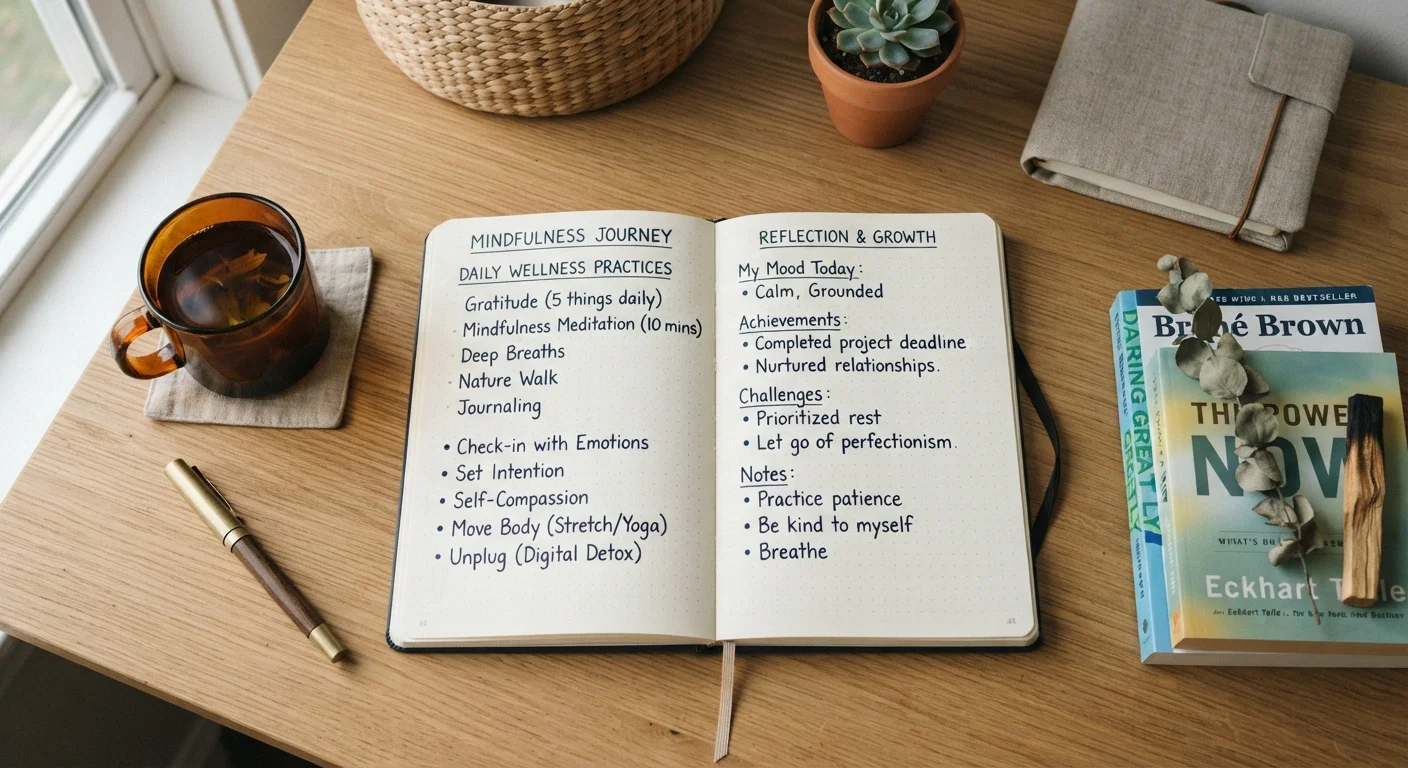 MINDFULNESS JOURNEY
DAILY WELLNESS PRACTICES
Gratitude (5 things daily)
Mindfulness Meditation (10 mins)
Deep Breaths
Nature Walk
Journaling
• Check-in with Emotions
• Set Intention
• Self-Compassion
• Move Body (Stretch/Yoga)
• Unplug (Digital Detox)
REFLECTION & GROWTH
My Mood Today:
• Calm, Grounded
Achievements:
• Completed project deadline
• Nurtured relationships.
Challenges:
• Prioritized rest
• Let go of perfectionism.
Notes:
• Practice patience
• Be kind to myself
• Breathe
BESTSELLER
Brown
DARING GREATLY
POWE
NOW
Eckhart